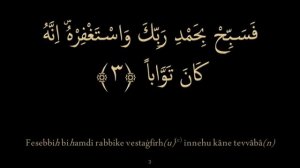 فَسَبِّحْ بِحَمْدِ رَبِّكَ وَاسْتَغْفِرْهُۜ اِنَّهُ
كَانَ تَوَّاباً ﴿٣﴾
Fesebbih bihamdi rabbike vestaġfirh(u)(c) innehu kâne tevvâbâ(n)
3